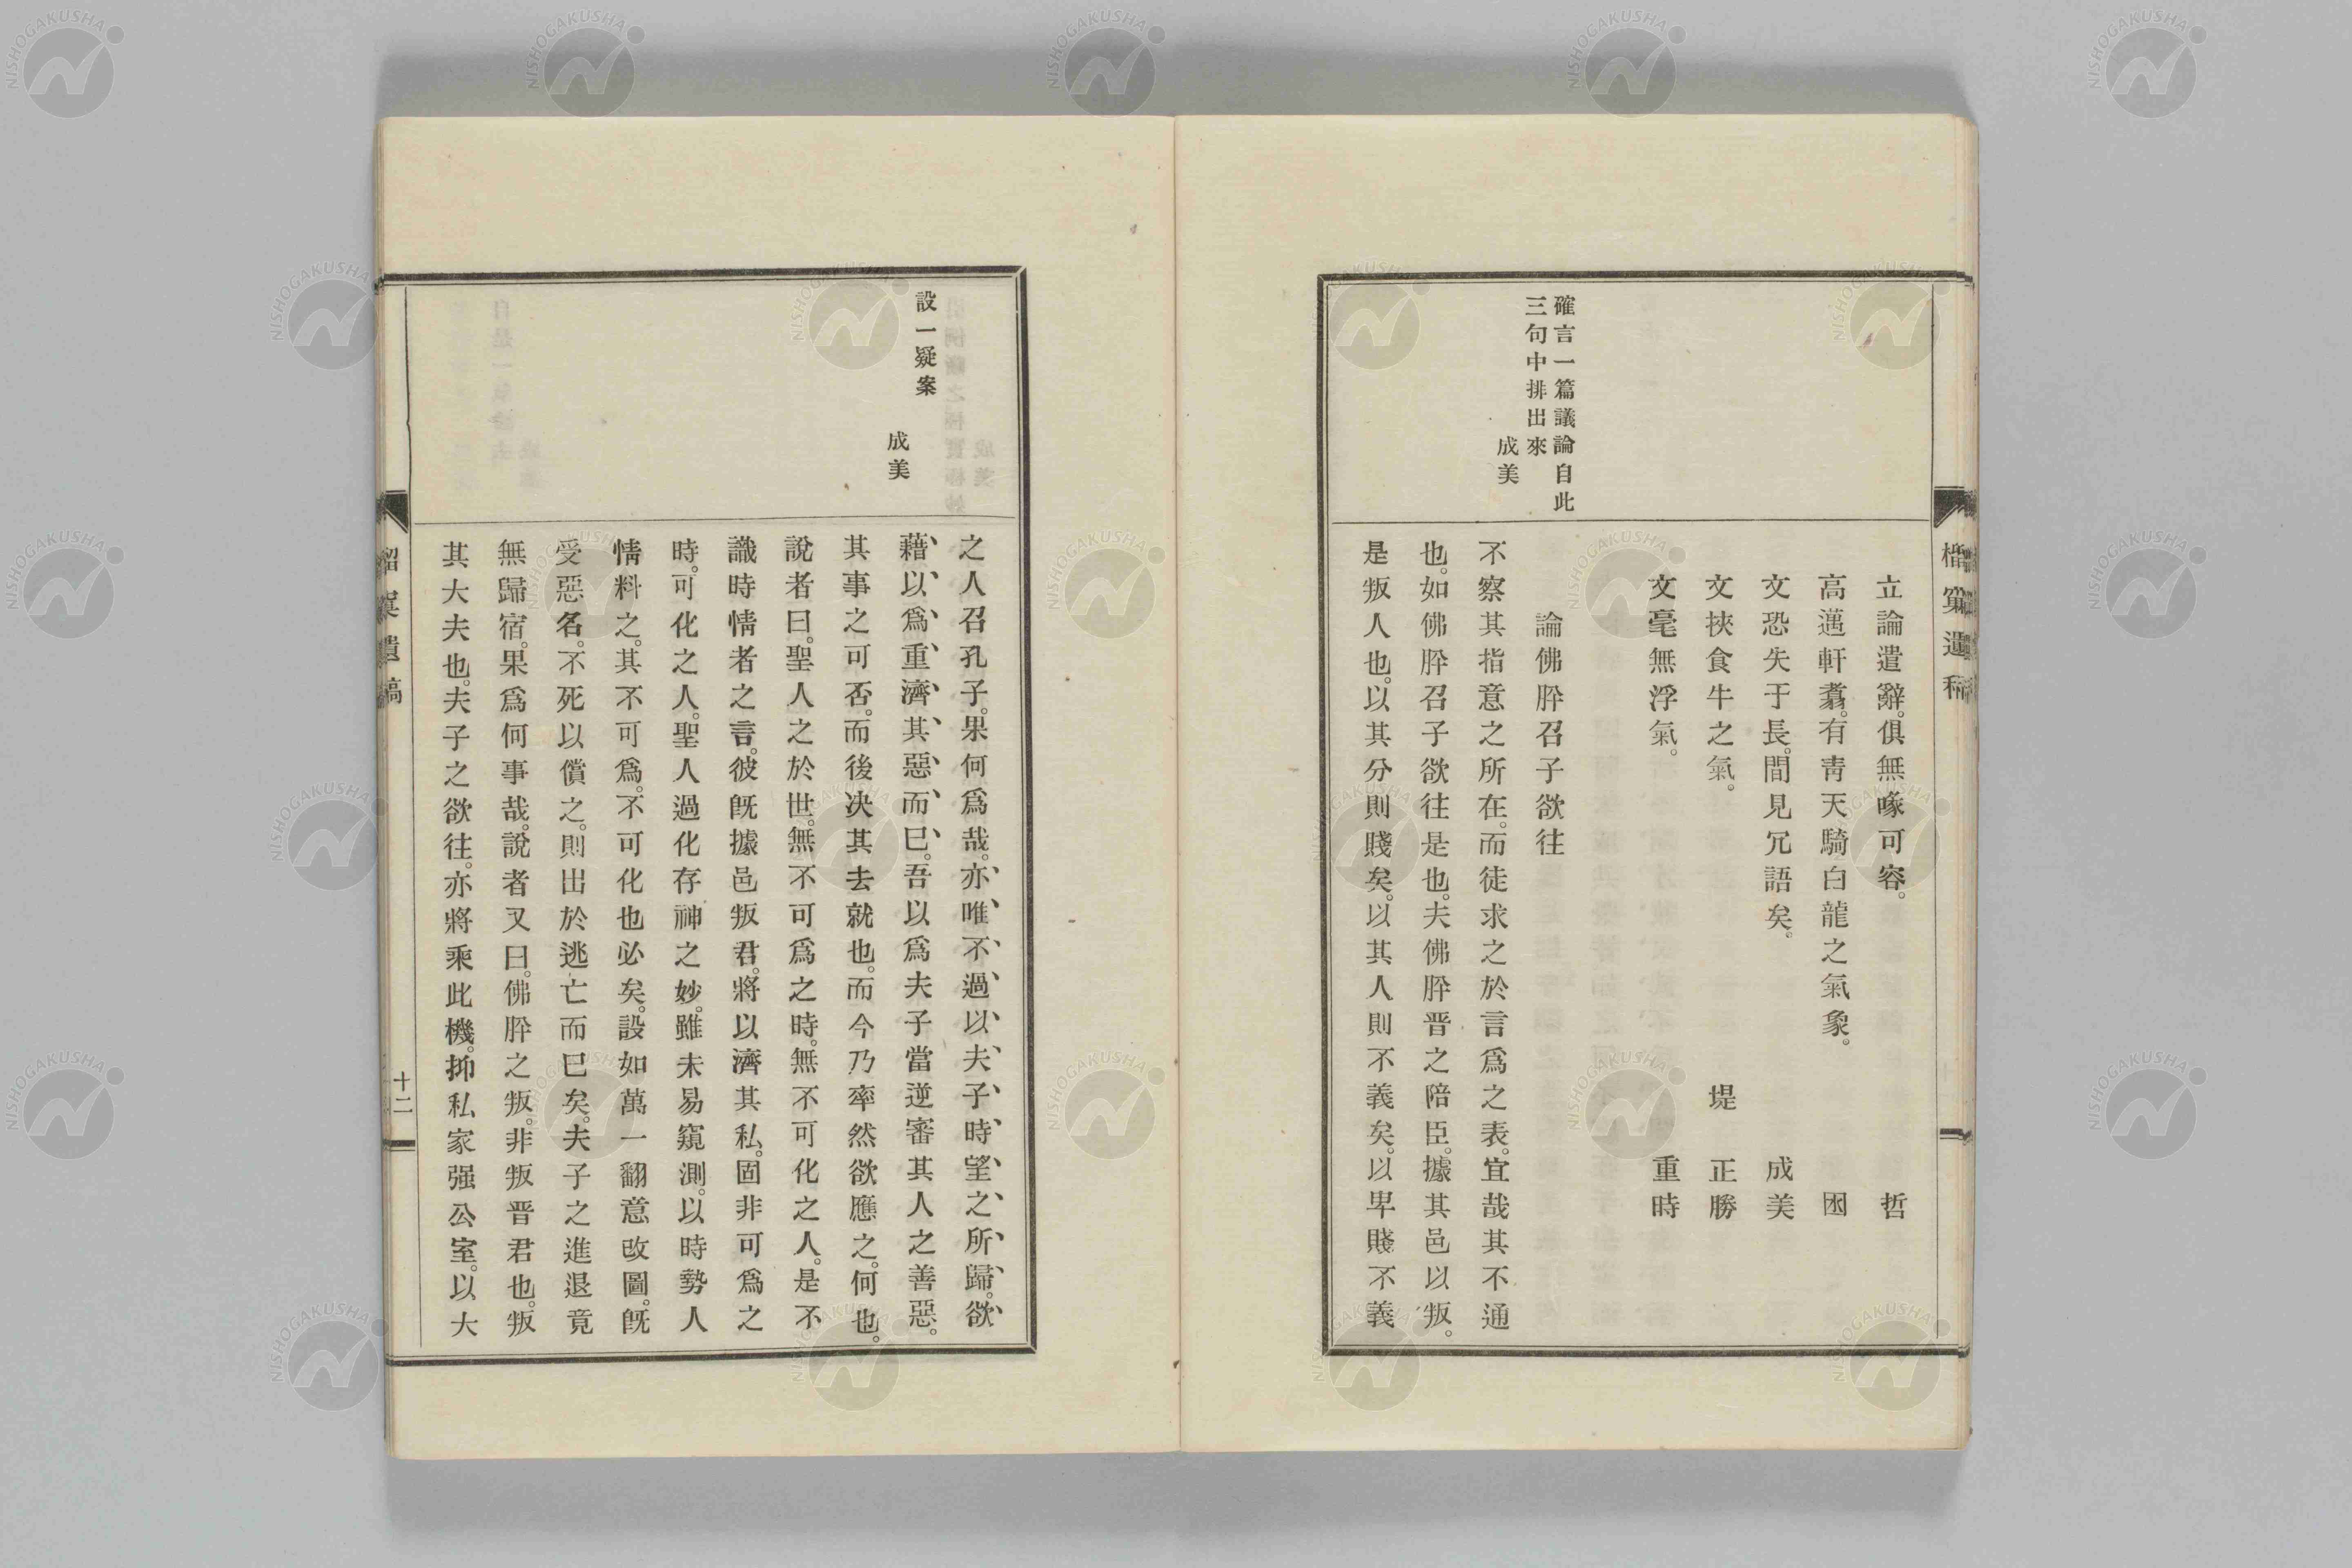 立論遣辭。俱無喙可容。　哲
高邁軒翥。有靑天騎白龍之氣象。
文恐失于長。間見冗語矣。　成美
文挾食牛之氣。　堤　正勝
文毫無浮氣。　重時
確言一篇議論自此
三句中排出來
成美
論佛肸召子欲往
不察其指意之所在。而徒求之於言爲之表。宜哉其不通
也。如佛肸召子欲往是也。夫佛肸晋之陪臣。據其邑以叛。
是叛人也。以其分則賤矣。以其人則不義矣。以卑賤不義
設一疑案
成美
之人召孔子。果何爲哉。亦唯不過以夫子時望之所歸。欲
藉以爲重濟其惡而已。吾以爲夫子當逆審其人之善惡。
其事之可否。而後决其去就也。而今乃率然欲應之。何也。
說者曰。聖人之於世。無不可爲之時。無不可化之人。是不
識時情者之言。彼既據邑叛君。將以濟其私。固非可爲之
時。可化之人。聖人過化存神之妙。雖未易窺測。以時勢人
情料之。其不可爲。不可化也必矣。設如萬一翻意改圖。既
受惡名。不死以償之。則出於逃亡而已矣。夫子之進退竟
無歸宿。果爲何事哉。說者又曰。佛肸之叛。非叛晋君也。叛
其大夫也。夫子之欲往。亦將乘此機。抑私家强公室。以大
遺稿
十二
NISHOGAKUSHA